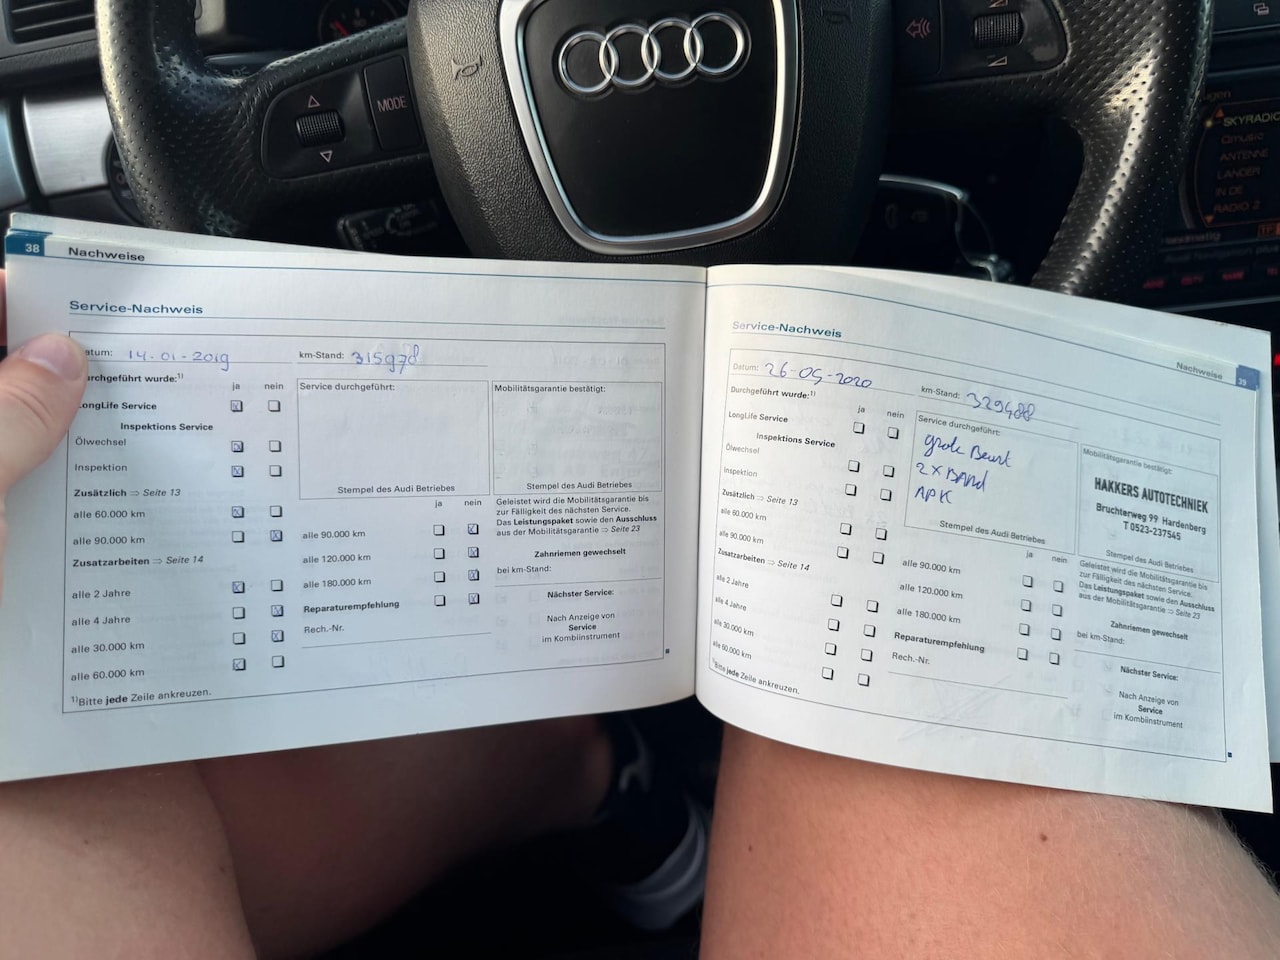 MODE
SKYRADIO
Qmusic
ANTENNE
LANDER
IN DE
RADIO 2
38
Nachweise
Service-Nachweis
atum: 14-01-2019 km-Stand: 315978
urchgeführt wurde:1)
ja nein
LongLife Service
Inspektions Service
Ölwechsel
Inspektion
Zusätzlich ⇒ Seite 13
alle 60.000 km
alle 90.000 km
Zusatzarbeiten ⇒ Seite 14
alle 2 Jahre
alle 4 Jahre
alle 30.000 km
alle 60.000 km
1)Bitte jede Zeile ankreuzen.
Service durchgeführt:
Stempel des Audi Betriebes
ja nein
alle 90.000 km
alle 120.000 km
alle 180.000 km
Reparaturempfehlung
Rech.-Nr.
Mobilitätsgarantie bestätigt:
Stempel des Audi Betriebes
Geleistet wird die Mobilitätsgarantie bis
zur Fälligkeit des nächsten Service.
Das Leistungspaket sowie den Ausschluss
aus der Mobilitätsgarantie ⇒ Seite 23
Zahnriemen gewechselt
bei km-Stand:
Nächster Service:
Nach Anzeige von
Service
im Kombiinstrument
Nachweise
39
Service-Nachweis
Datum: 26-05-2020 km-Stand: 329488
Durchgeführt wurde:1)
ja nein
LongLife Service
Inspektions Service
Ölwechsel
Inspektion
Zusätzlich ⇒ Seite 13
alle 60.000 km
alle 90.000 km
Zusatzarbeiten ⇒ Seite 14
alle 2 Jahre
alle 4 Jahre
alle 30.000 km
alle 60.000 km
1)Bitte jede Zeile ankreuzen.
Service durchgeführt:
grote Beurt
2 x BAND
APK
Stempel des Audi Betriebes
ja nein
alle 90.000 km
alle 120.000 km
alle 180.000 km
Reparaturempfehlung
Rech.-Nr.
Mobilitätsgarantie bestätigt:
HAKKERS AUTOTECHNIEK
Bruchterweg 99 Hardenberg
T 0523-237545
Stempel des Audi Betriebes
Geleistet wird die Mobilitätsgarantie bis
zur Fälligkeit des nächsten Service.
Das Leistungspaket sowie den Ausschluss
aus der Mobilitätsgarantie ⇒ Seite 23
Zahnriemen gewechselt
bei km-Stand:
Nächster Service:
Nach Anzeige von
Service
im Kombiinstrument